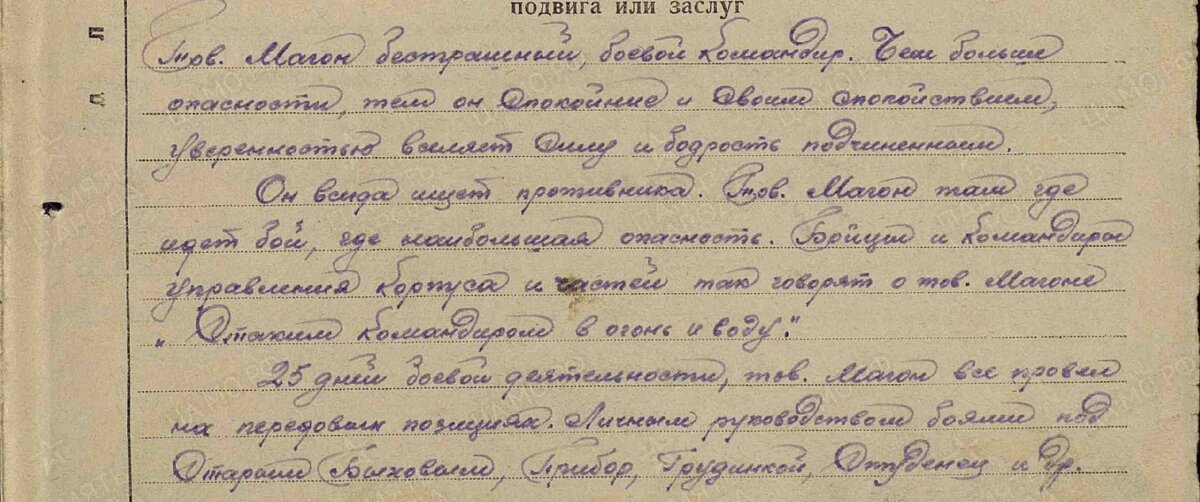 подвига или заслуг
Тов. Магон бестрашный, боевой командир. Чем больше
опасности, тем он спокойние и своим спокойствием,
уверенностью вселяет силу и бодрость подчиненным.
Он всегда ищет противника. Тов. Магон там где
идет бой, где наибольшая опасность. Бойцы и командиры
управления корпуса и частей так говорят о тов. Магоне
„С таким командиром в огонь и воду".
25 дней боевой деятельности, тов. Магон все провел
на передовых позициях. Личным руководством боями под
Старым Быховым, Прибор, Грудинкой, Студенец и др.